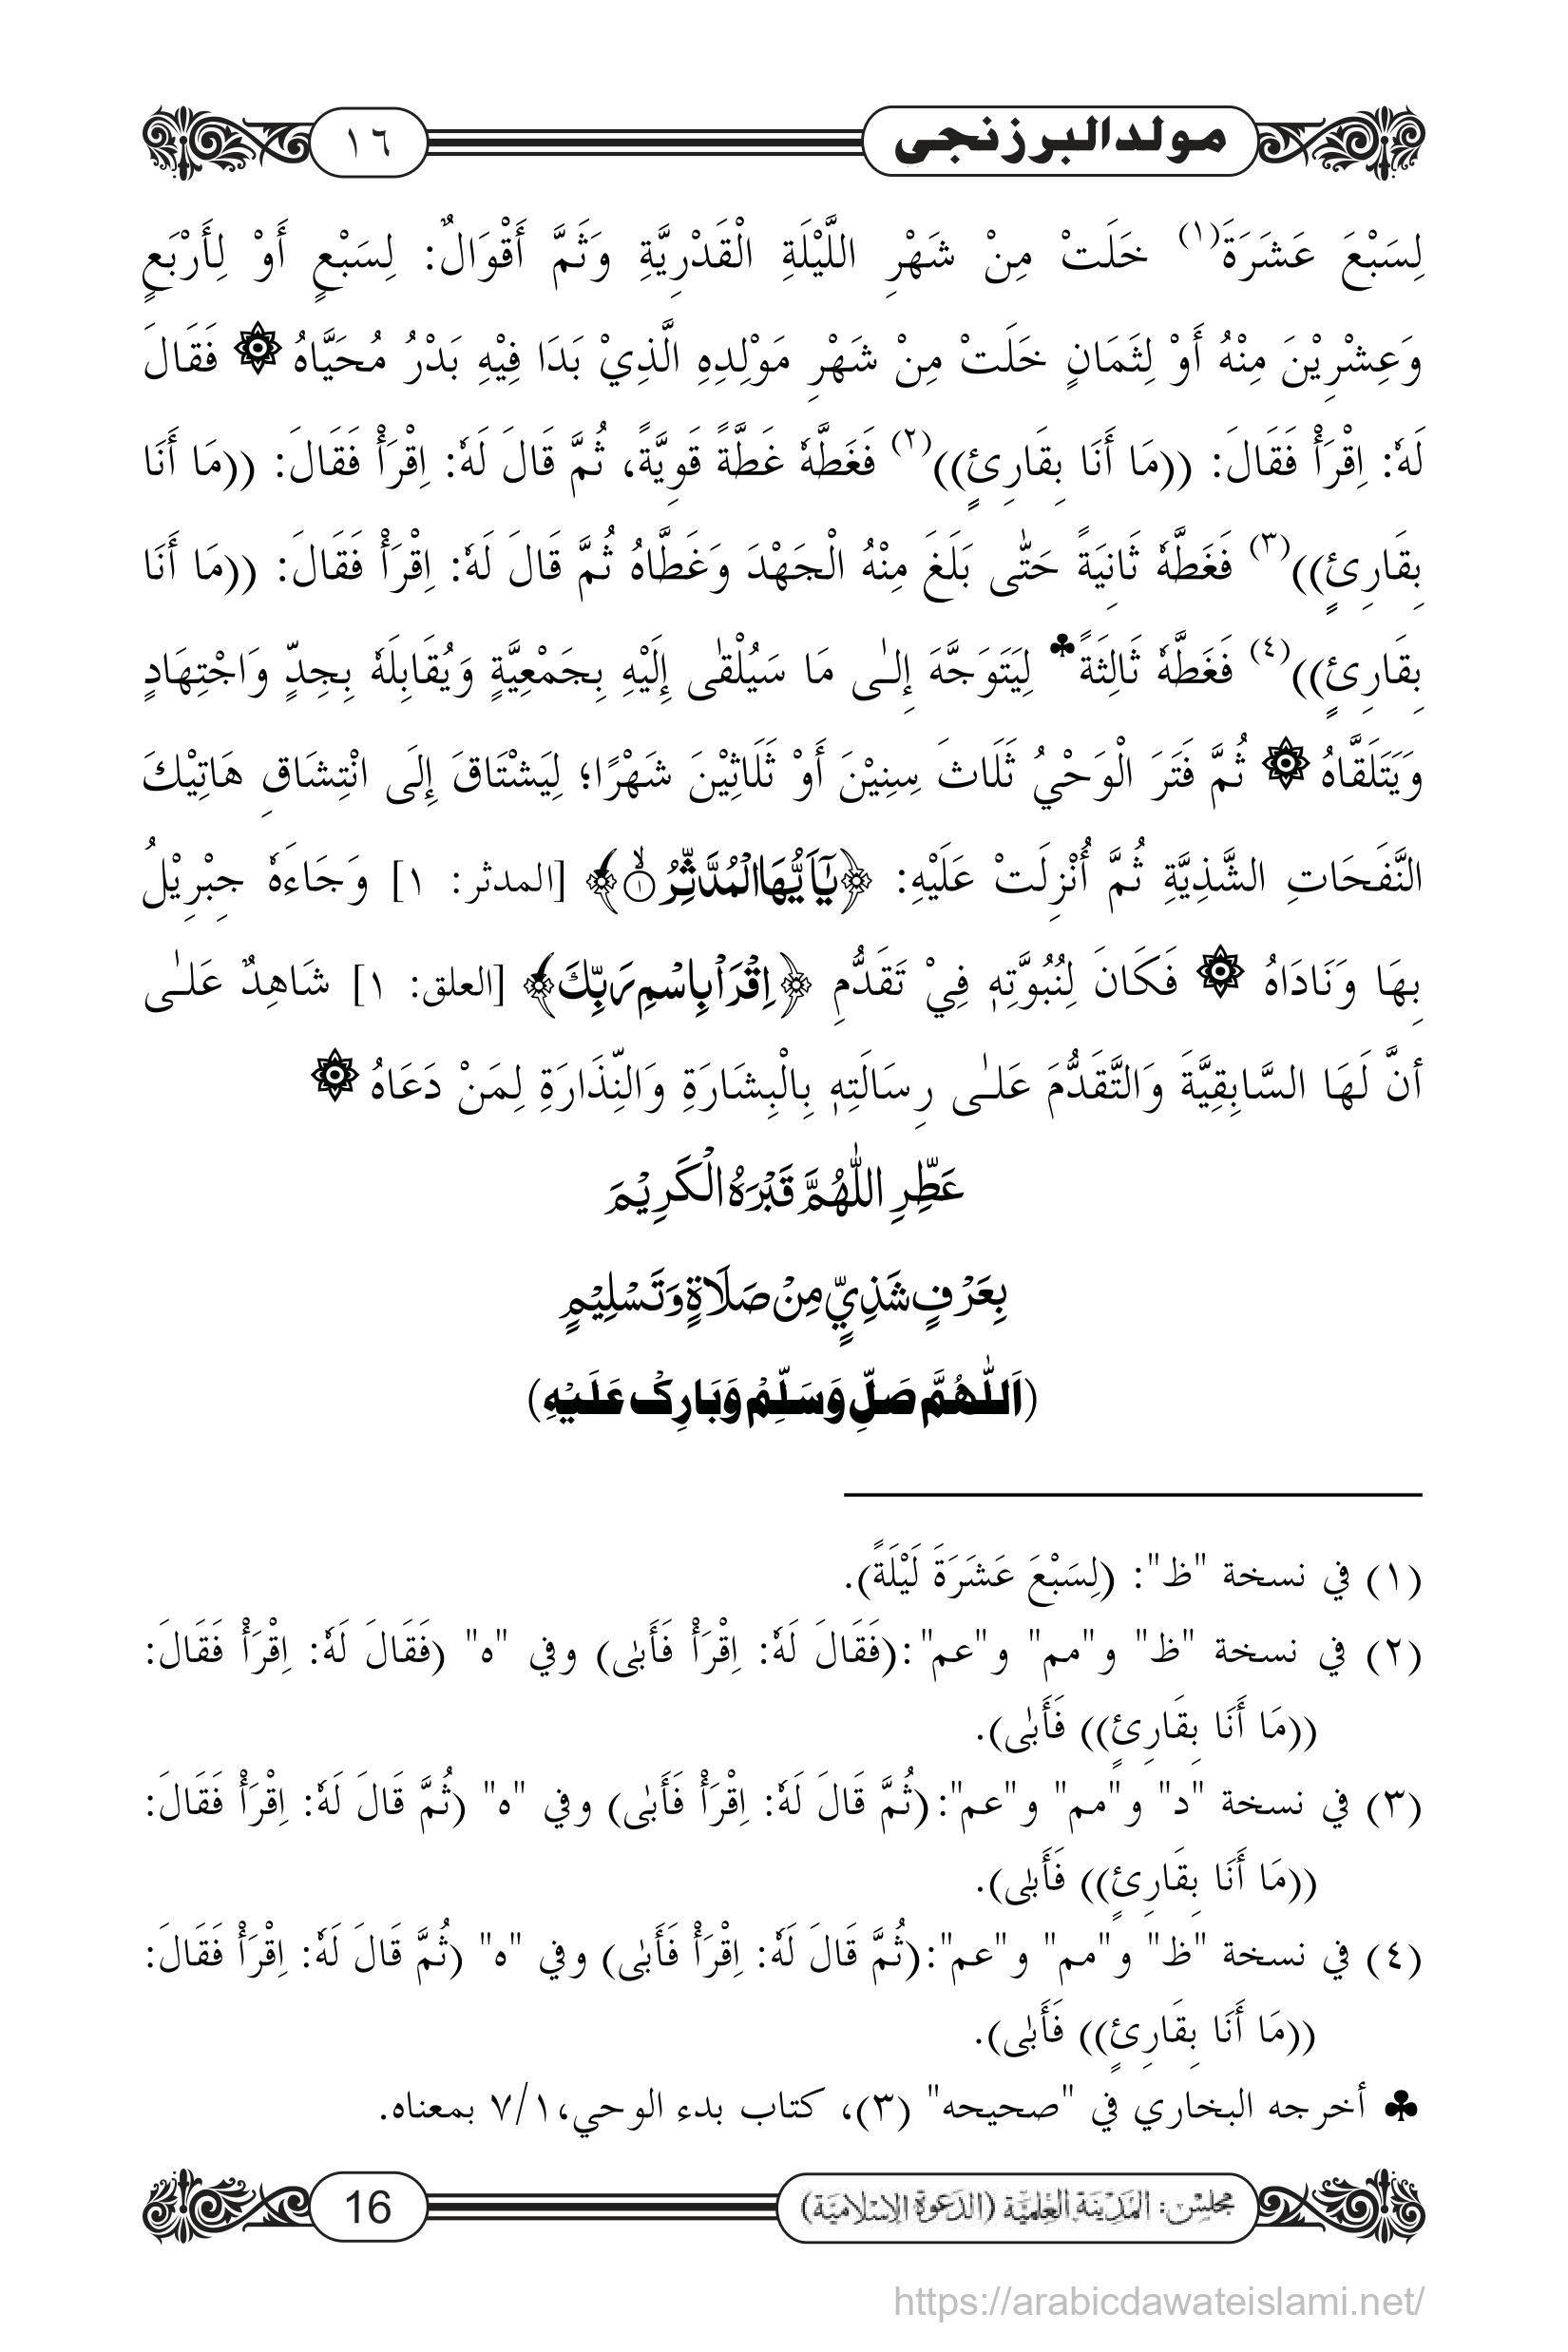 مولد البرزنجي ١٦
لِسَبْعَ عَشَرَةَ(١) خَلَتْ مِنْ شَهْرِ اللَّيْلَةِ الْقَدْرِيَّةِ وَثَمَّ أَقْوَالٌ: لِسَبْعٍ أَوْ لِأَرْبَعٍ
وَعِشْرِيْنَ مِنْهُ أَوْ لِثَمَانٍ خَلَتْ مِنْ شَهْرِ مَوْلِدِهِ الَّذِيْ بَدَا فِيْهِ بَدْرُ مُحَيَّاهُ ۞ فَقَالَ
لَهٗ: اِقْرَأْ فَقَالَ: ((مَا أَنَا بِقَارِئٍ))(٢) فَغَطَّهٗ غَطَّةً قَوِيَّةً، ثُمَّ قَالَ لَهٗ: اِقْرَأْ فَقَالَ: ((مَا أَنَا
بِقَارِئٍ))(٣) فَغَطَّهٗ ثَانِيَةً حَتّٰى بَلَغَ مِنْهُ الْجَهْدَ وَغَطَّاهُ ثُمَّ قَالَ لَهٗ: اِقْرَأْ فَقَالَ: ((مَا أَنَا
بِقَارِئٍ))(٤) فَغَطَّهٗ ثَالِثَةً♣ لِيَتَوَجَّهَ إِلـٰى مَا سَيُلْقٰى إِلَيْهِ بِجَمْعِيَّةٍ وَيُقَابِلَهٗ بِجِدٍّ وَاجْتِهَادٍ
وَيَتَلَقَّاهُ ۞ ثُمَّ فَتَرَ الْوَحْيُ ثَلَاثَ سِنِيْنَ أَوْ ثَلَاثِيْنَ شَهْرًا؛ لِيَشْتَاقَ إِلَى انْتِشَاقِ هَاتِيْكَ
النَّفَحَاتِ الشَّذِيَّةِ ثُمَّ أُنْزِلَتْ عَلَيْهِ: ﴿يٰۤاَيُّهَا الْمُدَّثِّرُ ۙ۱﴾ [المدثر: ١] وَجَاءَهٗ جِبْرِيْلُ
بِهَا وَنَادَاهُ ۞ فَكَانَ لِنُبُوَّتِهٖ فِيْ تَقَدُّمِ ﴿اِقْرَاْ بِاسْمِ رَبِّكَ﴾ [العلق: ١] شَاهِدٌ عَلـٰى
أنَّ لَهَا السَّابِقِيَّةَ وَالتَّقَدُّمَ عَلـٰى رِسَالَتِهٖ بِالْبِشَارَةِ وَالنِّذَارَةِ لِمَنْ دَعَاهُ ۞
عَطِّرِ اللّٰهُمَّ قَبْرَهُ الْكَرِيْمَ
بِعَرْفٍ شَذِيٍّ مِنْ صَلَاةٍ وَتَسْلِيْمٍ
(اَللّٰهُمَّ صَلِّ وَسَلِّمْ وَبَارِكْ عَلَيْهِ)
(١) في نسخة "ظ": (لِسَبْعَ عَشَرَةَ لَيْلَةً).
(٢) في نسخة "ظ" و"مم" و"عم":(فَقَالَ لَهٗ: اِقْرَأْ فَأَبٰى) وفي "ه" (فَقَالَ لَهٗ: اِقْرَأْ فَقَالَ:
((مَا أَنَا بِقَارِئٍ)) فَأَبٰى).
(٣) في نسخة "د" و"مم" و"عم":(ثُمَّ قَالَ لَهٗ: اِقْرَأْ فَأَبٰى) وفي "ه" (ثُمَّ قَالَ لَهٗ: اِقْرَأْ فَقَالَ:
((مَا أَنَا بِقَارِئٍ)) فَأَبٰى).
(٤) في نسخة "ظ" و"مم" و"عم":(ثُمَّ قَالَ لَهٗ: اِقْرَأْ فَأَبٰى) وفي "ه" (ثُمَّ قَالَ لَهٗ: اِقْرَأْ فَقَالَ:
((مَا أَنَا بِقَارِئٍ)) فَأَبٰى).
♣ أخرجه البخاري في "صحيحه" (٣)، كتاب بدء الوحي، ٧/١ بمعناه.
مجلس: المَدِيْنَة العِلْمِيَّة (الدَعْوَة الإسْلَاميَة) 16
https://arabicdawateislami.net/